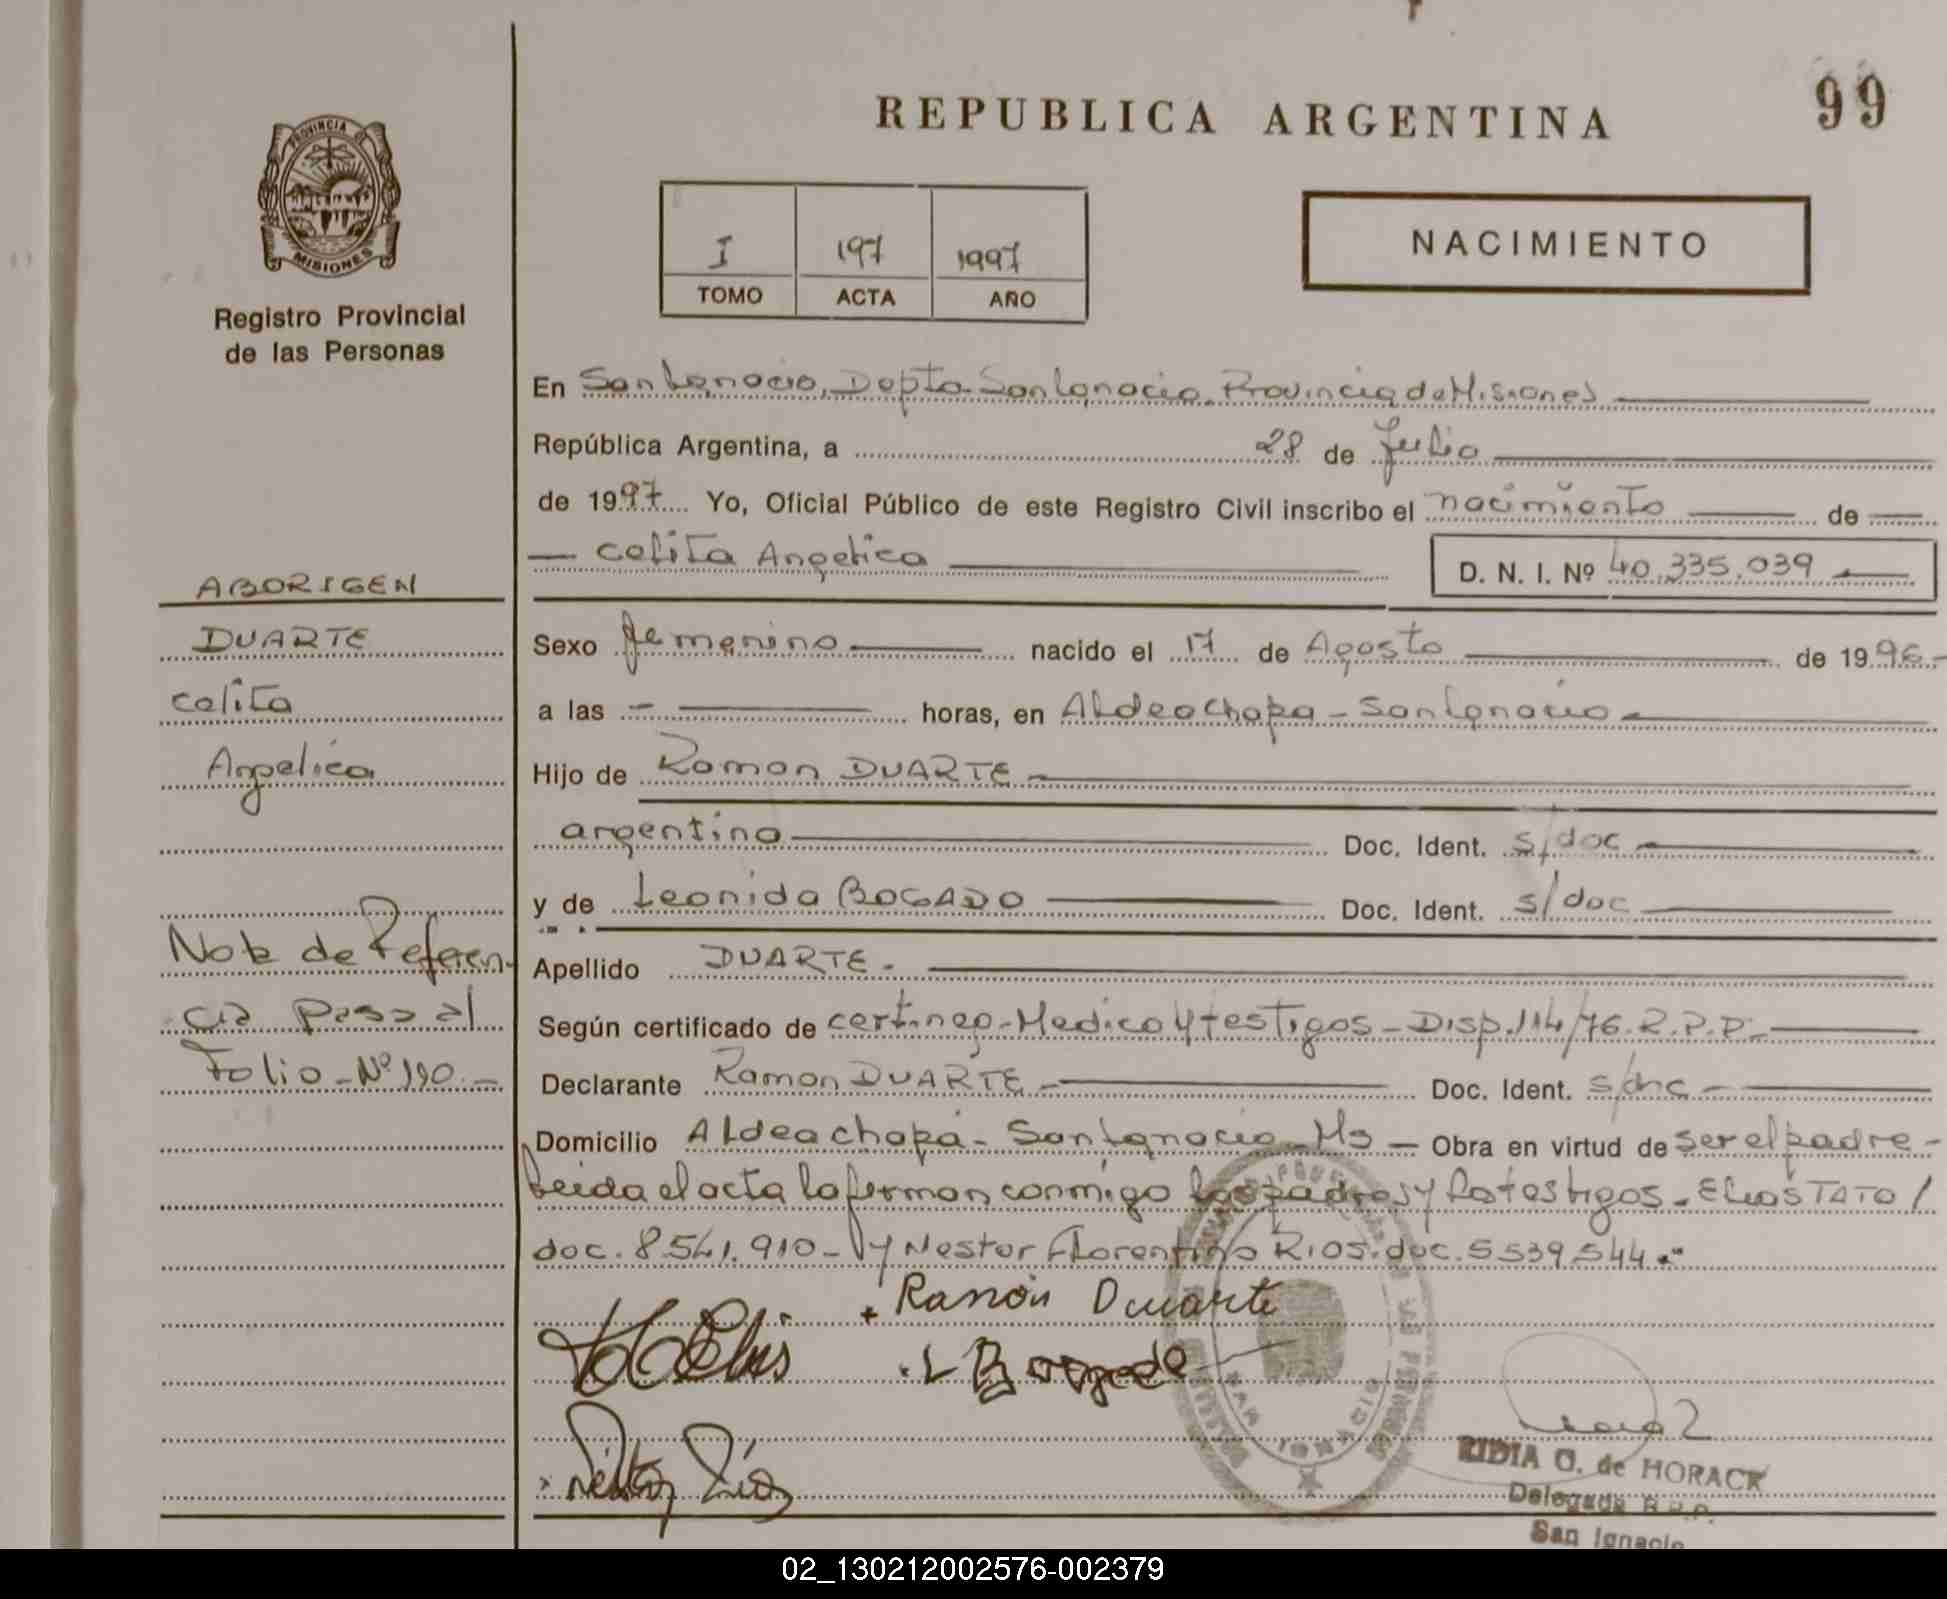 REPUBLICA ARGENTINA
99
PROVINCIA DE
MISIONES
Registro Provincial
de las Personas
I 197 1997
TOMO ACTA AÑO
NACIMIENTO
En San Ignacio, Depto San Ignacio, Provincia de Misiones
República Argentina, a 28 de Julio
de 1997 Yo, Oficial Público de este Registro Civil inscribo el nacimiento de
Celita Angelica D. N. I. Nº 40.335.039
ABORIGEN
DUARTE
Celita
Angelica
Nota de Referen-
cia Pasa al
Folio - Nº 190 -
Sexo femenino nacido el 17 de Agosto de 1996-
a las - horas, en Aldea chapa - San Ignacio
Hijo de Ramon DUARTE
argentino Doc. Ident. s/doc
y de Leonida BOGADO Doc. Ident. s/doc
Apellido DUARTE.
Según certificado de Medico y testigos - Disp. 114/76. R.P.P.
Declarante Ramon DUARTE Doc. Ident.
Domicilio Aldea chapá - San Ignacio - Ms - Obra en virtud de ser el padre -
Leida el acta la firman conmigo los padres y los testigos - Elios TATO /
doc. 8.541.910 - y Nestor Florentino Rios. doc. 5539544.
+ Ramón Duuarte
Elis
L Bogado
Néstor Ríos
RIDIA O. de HORACK
Delegada R.P.P.
San Ignacio
02_130212002576-002379